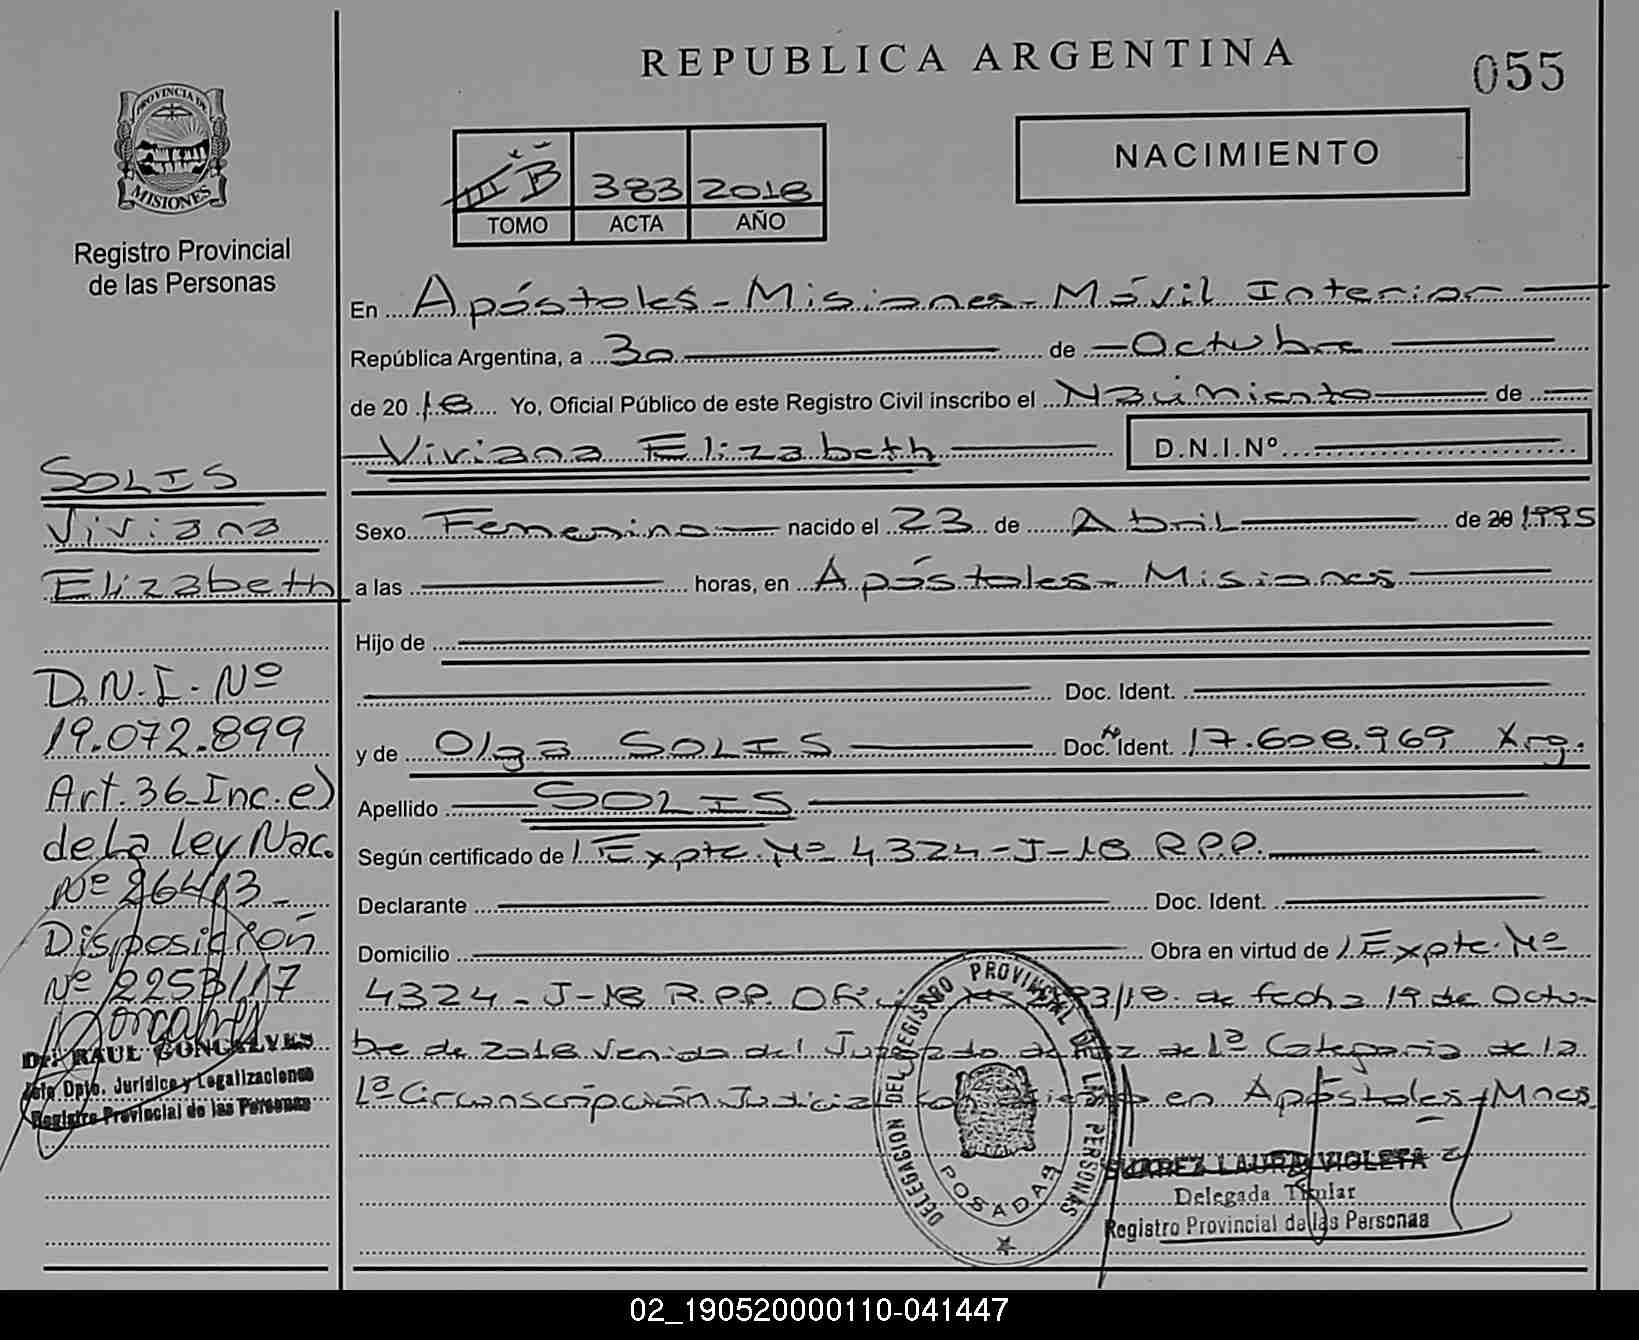 REPUBLICA ARGENTINA
055
PROVINCIA DE
MISIONES
Registro Provincial
de las Personas
NACIMIENTO
III B 383 2018
TOMO ACTA AÑO
En Apóstoles - Misiones - Móvil Interior
República Argentina, a 30 de Octubre
de 2018 Yo, Oficial Público de este Registro Civil inscribo el Nacimiento de
Viviana Elizabeth D.N.I.Nº
Sexo Femenino nacido el 23 de Abril de 20 1995
a las horas, en Apóstoles - Misiones
Hijo de
Doc. Ident.
y de Olga SOLIS Doc. Ident. 17.608.969 Arg.
Apellido SOLIS
Según certificado de Expte. Nº 4324-J-18 R.P.P.
Declarante Doc. Ident.
Domicilio Obra en virtud de Expte. Nº
4324-J-18 R.P.P. /18. de fecha 19 de Octu-
bre de 2018 venido del Juzgado de Paz de 1ª Categoria de la
1ª Circunscripción Judicial con en Apóstoles - Mnes.
SOLIS
Viviana
Elizabeth
D.N.I. Nº
19.072.899
Art. 36 Inc. e)
de la Ley Nac.
Nº 26413 -
Disposición
Nº 2253/17
Dr. RAUL GONCALVES
Jefe Dpto. Jurídico y Legalizaciones
Registro Provincial de las Personas
DELEGACION DEL REGISTRO PROVINCIAL DE LAS PERSONAS
POSADAS
SUAREZ LAURA VIOLETA
Delegada Titular
Registro Provincial de las Personas
02_190520000110-041447